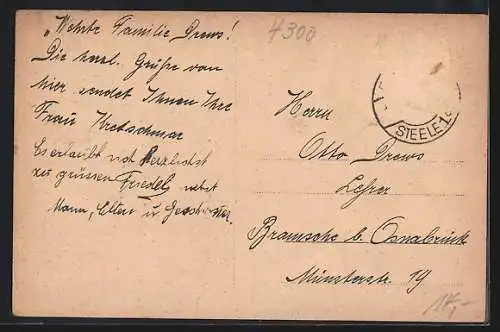 "Wehrte Familie Drews!
Die herzl. Grüße von
hier sendet Ihnen Ihre
Frau Kretschmar
Es erlaubt sich herzlichst
zu grüssen Friedel, nebst
Mann, Eltern u. Geschwister
4300
STEELE 1
Herrn
Otto Drews
Lehrer
Bramsche b. Osnabrück
Münsterstr. 19